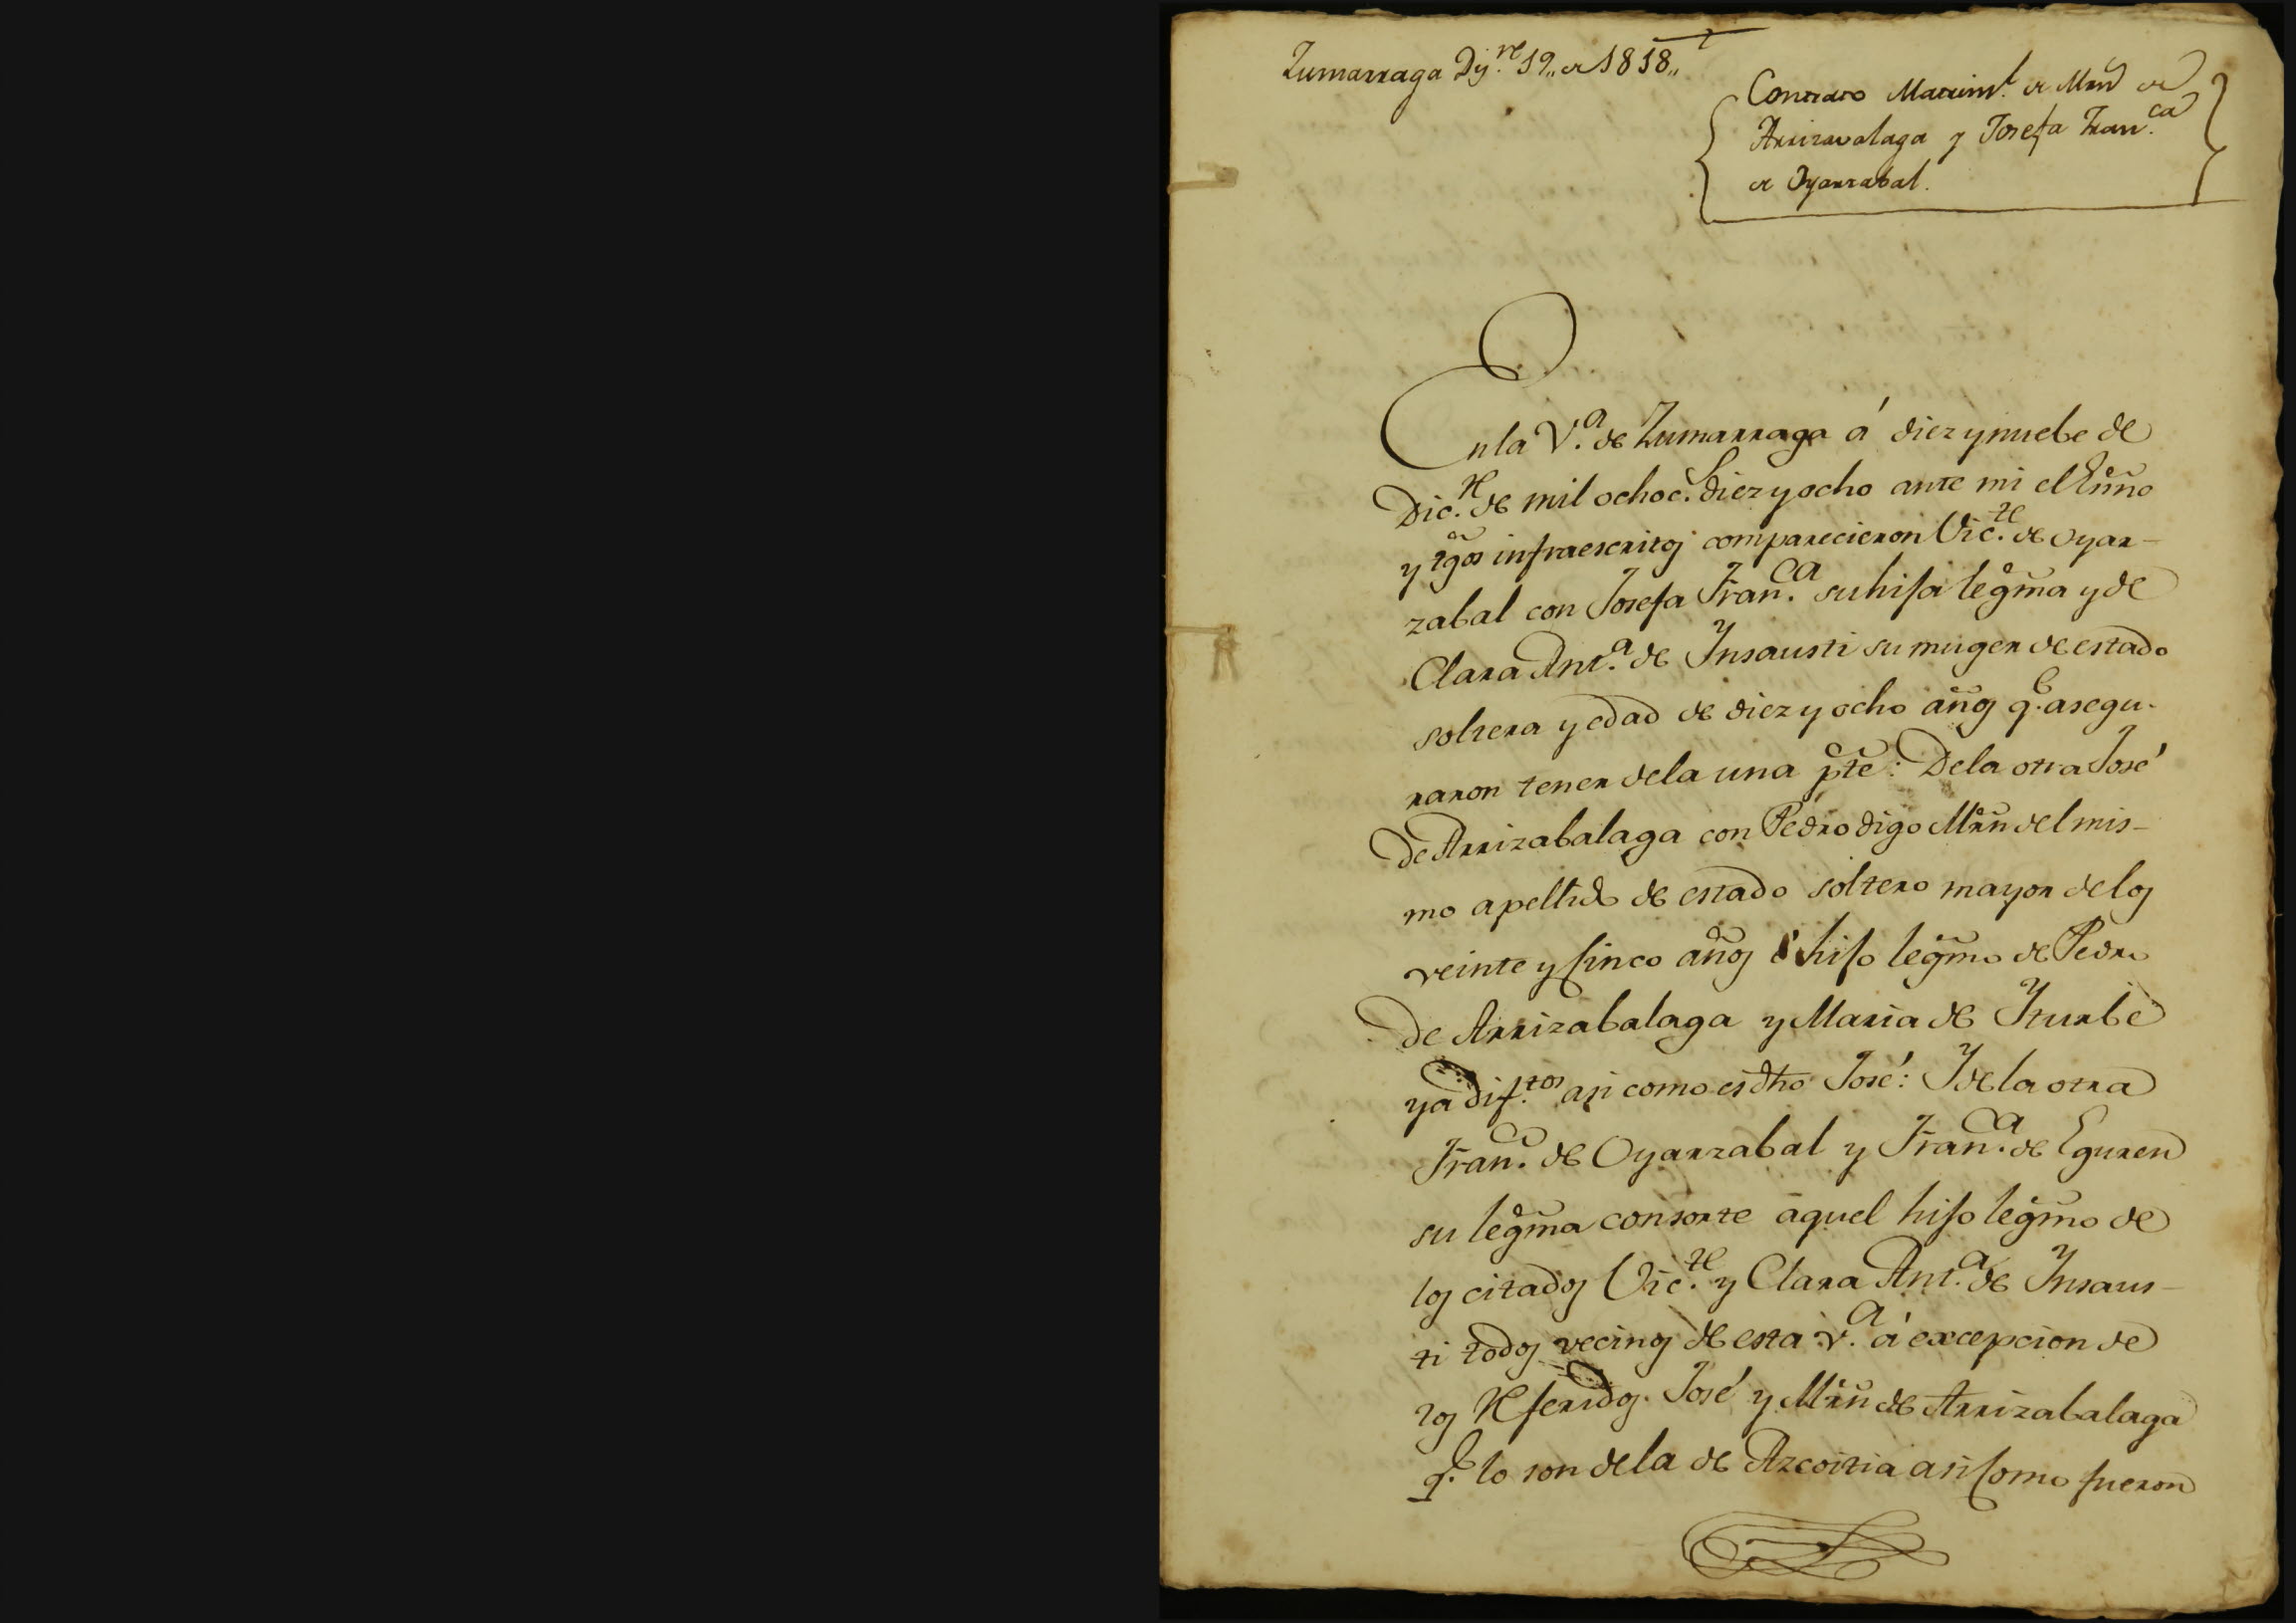 Zumarraga Dij.re 19,, de 1818,,
Contrato Matrim.l de Mrn de
Arrizavalaga y Josefa Fran.ca
de Oyarzabal.
En la V.a de Zumarraga á diez y nuebe de
Dic.re de mil ochoc.s diez y ocho ante mi el Essno
y tgos infraescritos comparecieron Vic.te de Oyar-
zabal con Josefa Fran.ca su hija legma y de
Clara Ant.a de Ynsausti su muger de estado
soltera y edad de diez y ocho años q.e asegu-
raron tener de la una pte: De la otra José
de Arrizabalaga con Pedro digo Mrn del mis-
mo apellido de estado soltero mayor de los
veinte y sinco años hijo legmo de Pedro
de Arrizabalaga y Maria de Yturbe
ya dif.tos asi como es dho José: Y de la otra
Fran.co de Oyarzabal y Fran.ca de Eguren
su legma consorte aquel hijo legmo de
los citados Vic.te y Clara Ant.a de Ynsaus-
ti todos vecinos de esta V.a á excepcion de
los referidos José y Mrn de Arrizabalaga
q.e lo son de la de Azcoitia asi como fueron